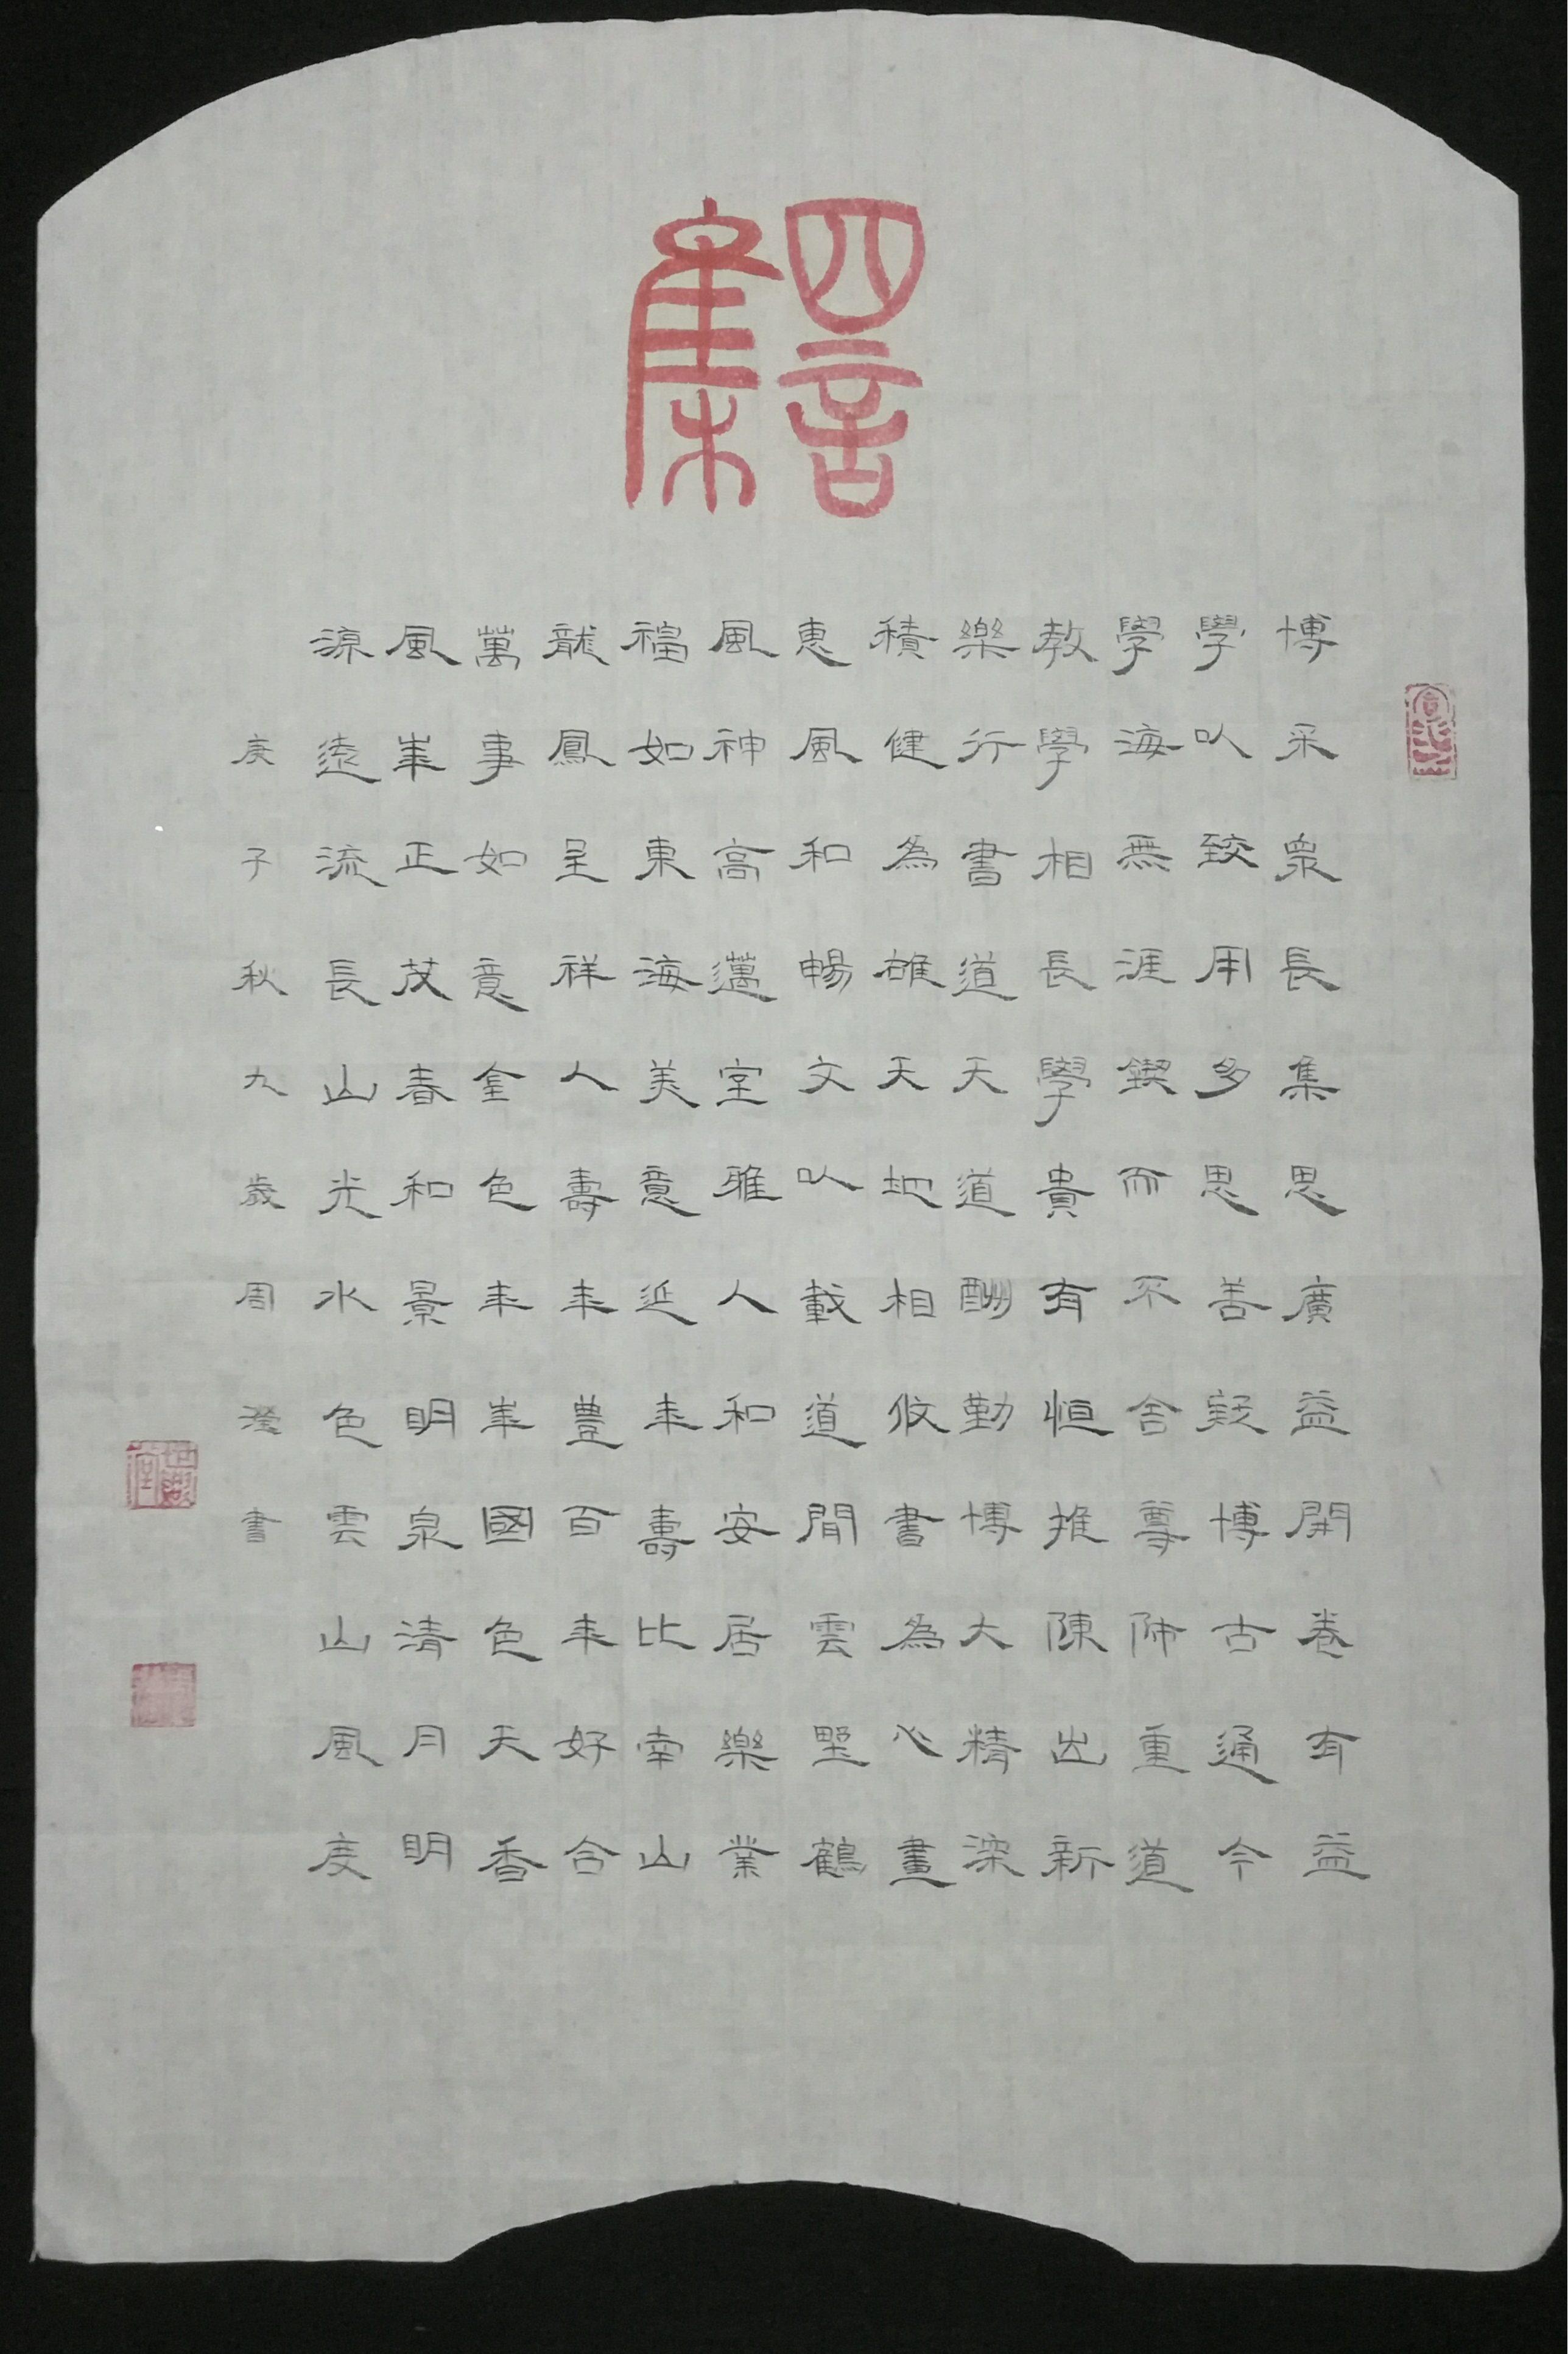 四言集
博采衆長集思廣益開卷有益
學以致用多思善疑博古通今
學海無涯鍥而不舍尊師重道
教學相長學貴有恒推陳出新
樂行書道天道酬勤博大精深
積健為雄天地相攸書為心畫
惠風和暢文以載道閒雲野鶴
風神高邁室雅人和安居樂業
福如東海美意延年壽比南山
龍鳳呈祥人壽年豊百年好合
萬事如意金色年華國色天香
風華正茂春和景明泉清月明
源遠流長山光水色雲山風度
庚子秋九歲周書